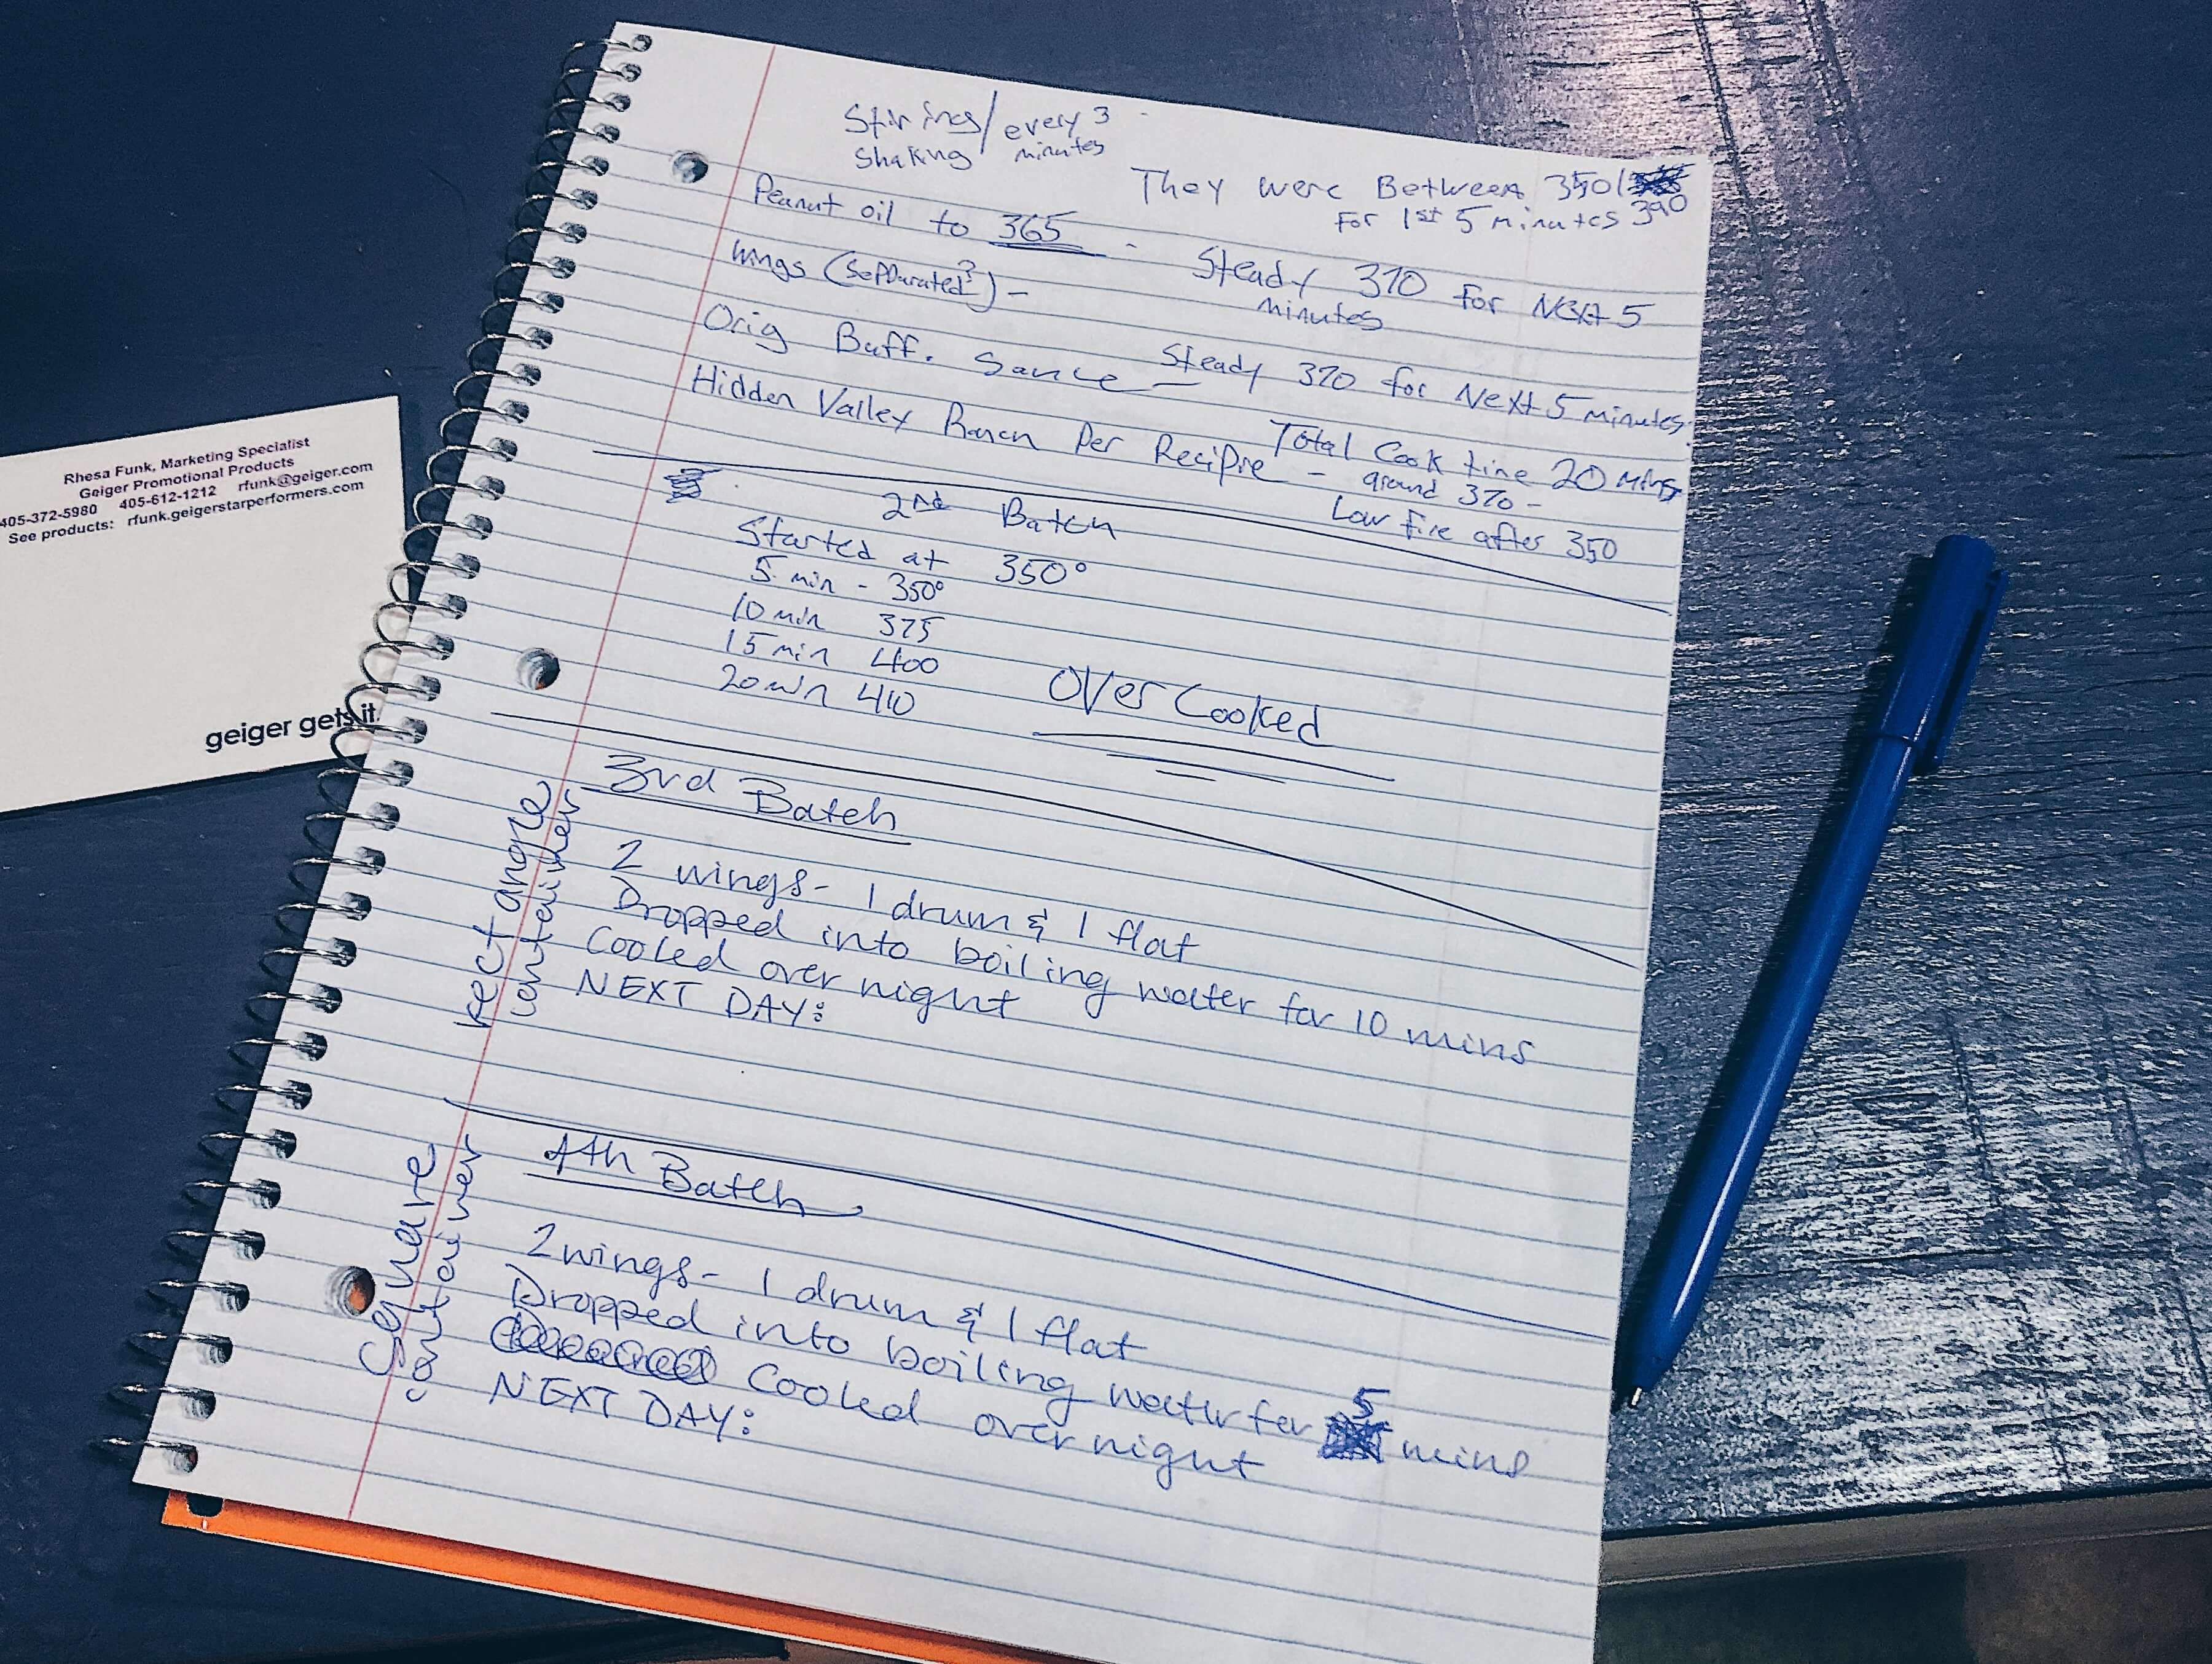 Stirring/ every 3
Shaking minutes
They were Between 350/
For 1st 5 minutes 390
Peanut oil to 365 - Steady 370 for Next 5
minutes
Wings (Sepparated?) -
Orig Buff. Sauce - Steady 370 for Next 5 minutes.
Hidden Valley Ranch Per Recipie - Total Cook time 20 mins
around 370 -
Low fire after 350
2nd Batch
Started at 350°
5 min - 350°
10 min 375
15 min 400
20 min 410
Over Cooked
3rd Batch
Rectangle
container
2 wings - 1 drum & 1 flat
Dropped into boiling water for 10 mins
Cooled over night
NEXT DAY:
4th Batch
Square
container
2 wings - 1 drum & 1 flat
Dropped into boiling water for 5 mins
Cooled over night
NEXT DAY:
Rhesa Funk, Marketing Specialist
Geiger Promotional Products
405-372-5980 405-612-1212 rfunk@geiger.com
See products: rfunk.geigerstarperformers.com
geiger gets it.